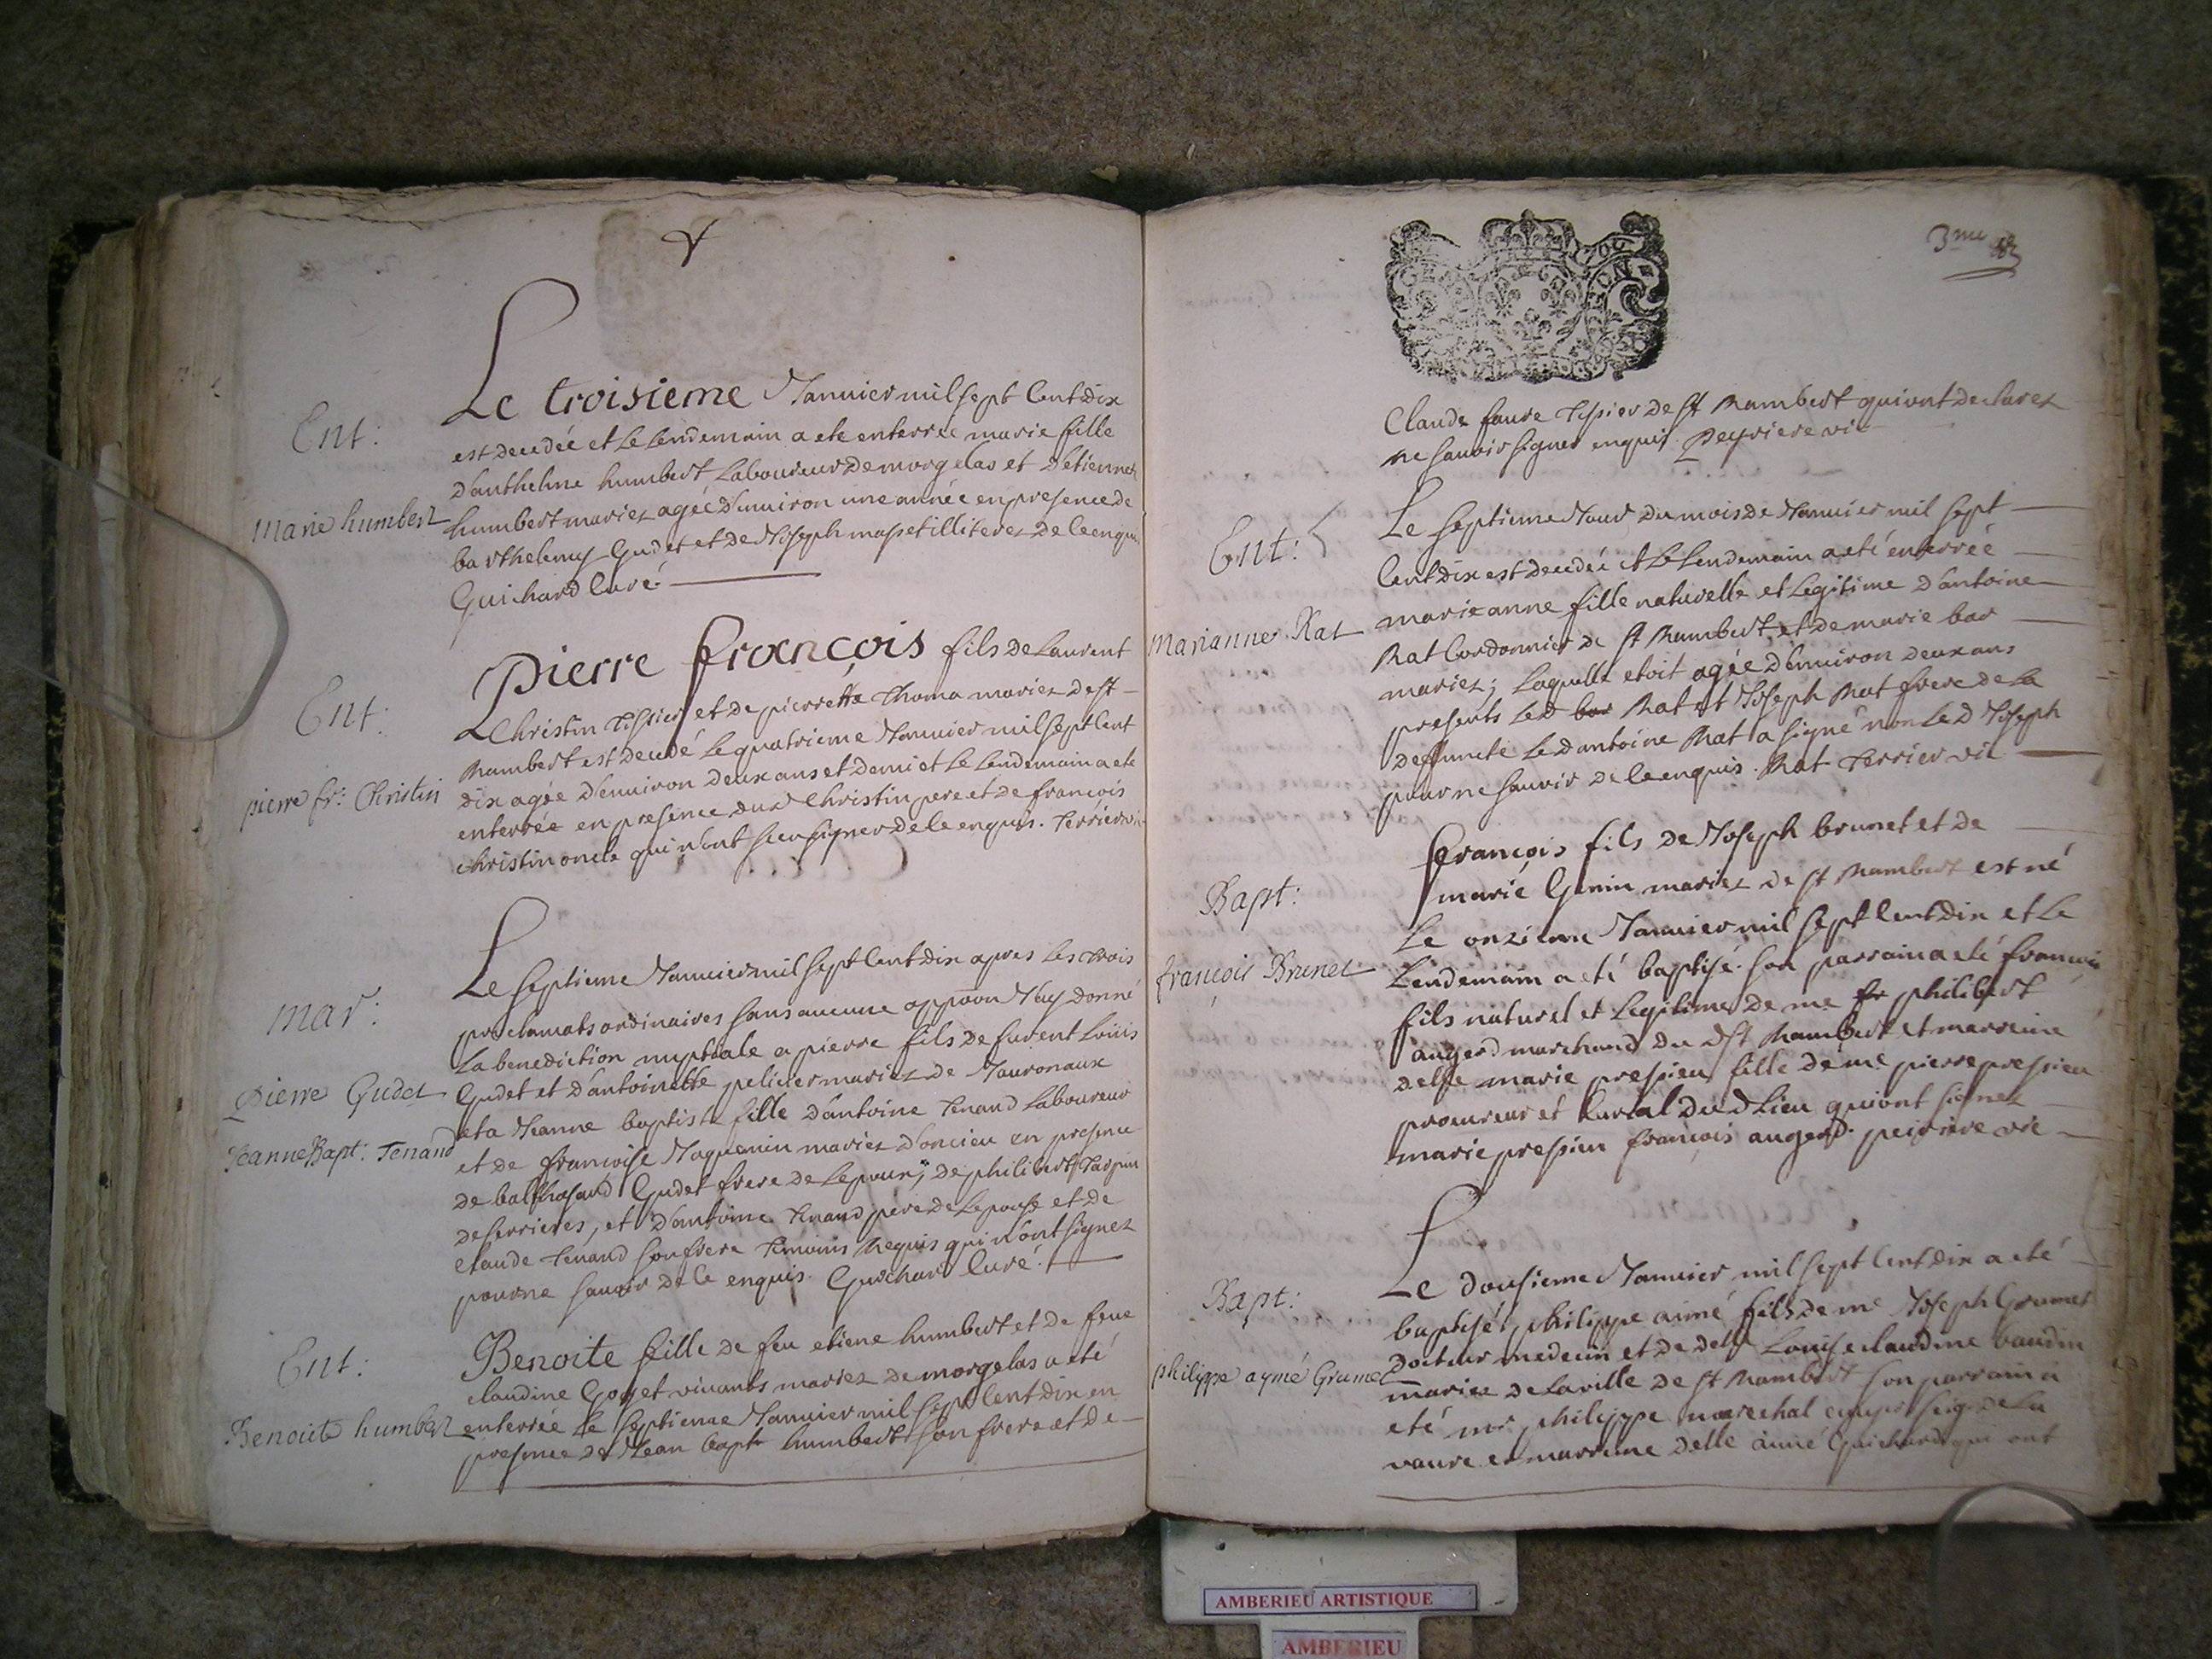 Le troisieme Janvier mil sept Cent dix
Ent:
est decedée et Le Lendemain a ete enterrée marie fille
d'anthelme humbert Laboureur de morgelas et d'etiennet
Marie humbert
humbert mariez agée d'environ une année en presence de
barthelemy Gudet et de Joseph masset illiterez de ce enquis
Guichard Curé
Pierre françois fils de Laurent
Ent:
Christin Tissier et de pierrette Thoma mariez de st
Rambert est decedé Le quatrieme Janvier mil sept Cent
pierre fr: Christin
dix agée d'environ deux ans et demi et Le Lendemain a ete
enterrée en presence dud Christin pere et de françois
christin oncle qui n'ont sceu signer de ce enquis. Terrier vic
Le septieme Janvier mil sept Cent dix apres Les trois
mar:
proclamats ordinaires sans aucune oppoon J'ay donné
La benediction nuptiale a pierre fils de furent Loüis
Pierre Gudet
Gudet et d'antoinette pelicier mariez de Javronaux
et a Jeanne baptiste fille d'antoine Tenand Laboureur
Jeanne Bapt: Tenand
et de françoise Juquenin mariez d'oncieu en presence
de balthasard Gudet frere de Lepoux, de philibert Tarpin
de serrieres, et d'antoine Tenand pere de Lepouse et de
claude Tenand son frere temoins Requis qui n'ont signez
pour ne savoir de ce enquis. Guichard Curé.
Benoite fille de feu etiene humbert et de feue
Ent:
claudine Goyet vivants mariez de morgelas a eté
Benoite humbert
enterrée Le septieme Janvier mil sept Cent dix en
presence de Jean bapt humbert son frere et de
3me
Claude faure Tissier de st Rambert qui ont declarez
ne savoir signer enquis. Peyriere vic
Le septieme Jour du mois de Janvier mil sept
Ent:
Cent dix est decedée et Le Lendemain a eté enterrée
marie anne fille naturelle et Legitime d'antoine
Marianne Rat
Rat Cordonnier de st Rambert et de marie bar
mariez; Laquelle etoit agée d'environ deux ans
presents Led bar Rat et Joseph Rat frere de La
deffuncte Led antoine Rat a signé non Led Joseph
pour ne savoir de ce enquis. Rat Terrier vic
françois fils de Joseph brunet et de
Bapt:
marie Genin mariez de st Rambert est né
Le onzieme Janvier mil sept Cent dix et Le
françois Brunet
Lendemain a eté baptisé. son parrain a eté françois
fils naturel et Legitime de me fr philibert
augerd marchand du d st Rambert et marreine
delle marie pressieu fille de me pierre pressieu
procureur et Curial dud Lieu qui ont signez
marie pressieu françois augerd. peyriere vic
Le dousieme Janvier mil sept Cent dix a eté
Bapt:
baptisé philippe aimé fils de me Joseph Grumet
docteur medecin et de delle Louise claudine baudin
philippe aymé Grumet
mariez de La ville de st Rambert son parrain a
eté mr philippe marechal seigr de La
vavre et marreine delle aimé Guichard qui ont
AMBERIEU ARTISTIQUE
AMBERIEU